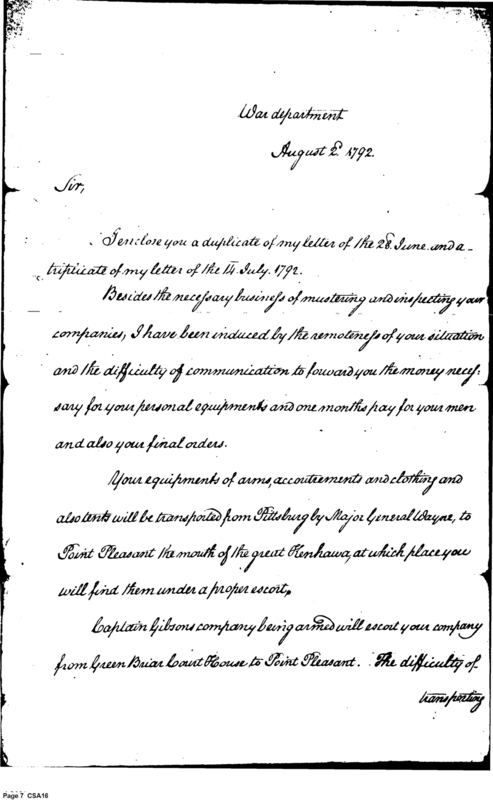 War department
August 2d. 1792.
Sir,
I enclose you a duplicate of my letter of the 28. June and a
triplicate of my letter of the 14. July. 1792.
Besides the necessary business of mustering and inspecting your
companies, I have been induced by the remoteness of your situation
and the difficulty of communication to forward you the money neces:
sary for your personal equipments and one months pay for your men
and also your final orders.
Your equipments of arms, accoutrements and clothing and
also tents will be transported from Pittsburg by Major General Wayne, to
Point Pleasant the mouth of the great Kenhawa, at which place you
will find them under a proper escort,
Captain Gibsons company being armed will escort your company
from Green Briar Court House to Point Pleasant. The difficulty of
transporting
Page 7 CSA16